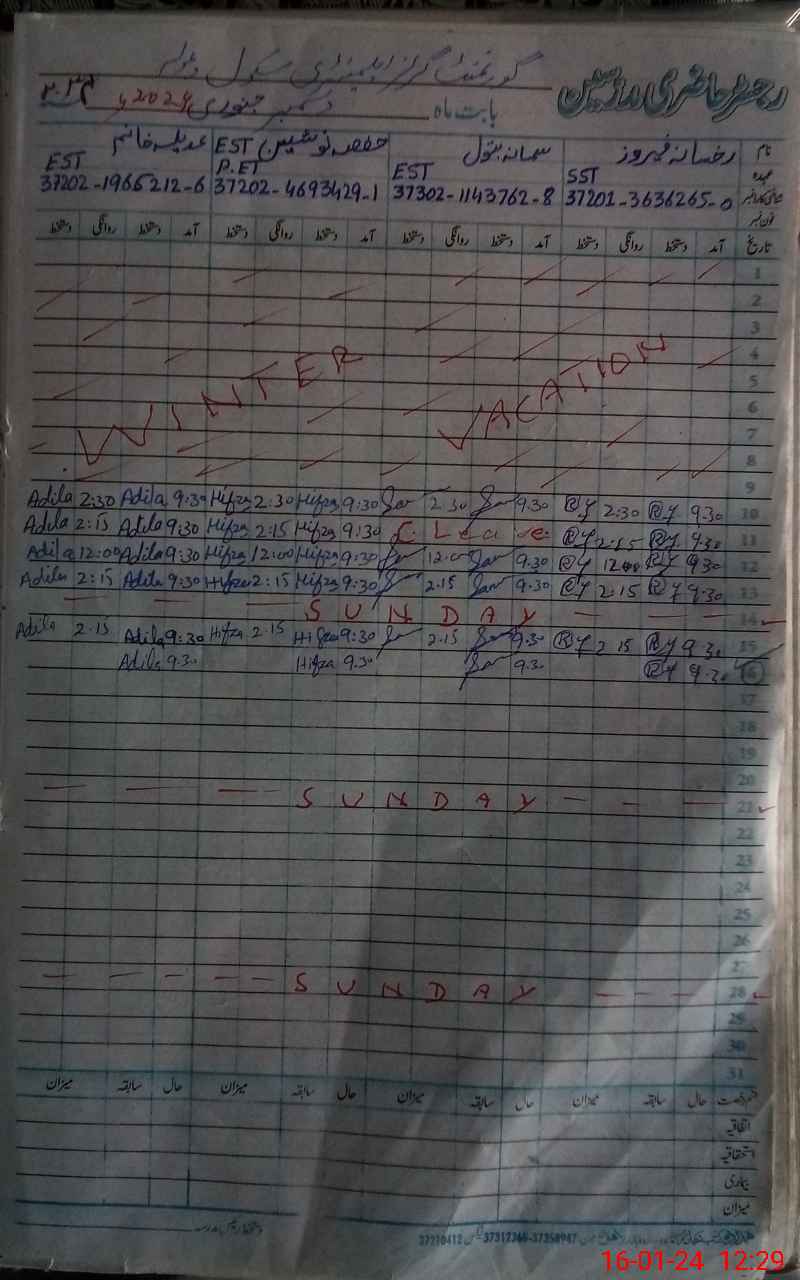 رجسٹر حاضری مدرسین
گورنمنٹ گرلز ایلیمنٹری سکول
بابت ماہ دسمبر جنوری 2024ء
نام رخسانہ فیروز سمانہ بتول حفصہ نوشین عدیلہ خانم
عہدہ SST EST EST P.ET EST
37201-3636265-0 37302-1143762-8 37202-4693429-1 37202-1966212-6
فون نمبر
تاریخ آمد دستخط روانگی دستخط آمد دستخط روانگی دستخط آمد دستخط روانگی دستخط آمد دستخط روانگی دستخط
1
2
3
4
5
6
7
8
WINTER VACATION
9
Adila 2:30 Adila 9:30 Hifza 2:30 Hifza 9:30 2.30 9.30 2:30 9.30 10
Adila 2:15 Adila 9:30 Hifza 2:15 Hifza 9:30 C. Leave 2:15 9.30 11
Adila 12:00 Adila 9:30 Hifza 12:00 Hifza 9:30 12:00 9.30 12:00 9.30 12
Adila 2:15 Adila 9:30 Hifza 2:15 Hifza 9:30 2.15 9.30 2:15 9.30 13
SUNDAY 14
Adila 2.15 Adila 9:30 Hifza 2.15 Hifza 9:30 2.15 9.30 2.15 9.30 15
Adila 9.30 Hifza 9.30 9.30 9.30 16
17
18
19
20
SUNDAY 21
22
23
24
25
26
27
SUNDAY 28
29
30
31
حال سابقہ میزان حال سابقہ میزان حال سابقہ میزان حال سابقہ میزان
اتفاقیہ
استحقاقیہ
بیماری
میزان
37210412 37312366-37358947
16-01-24 12:29